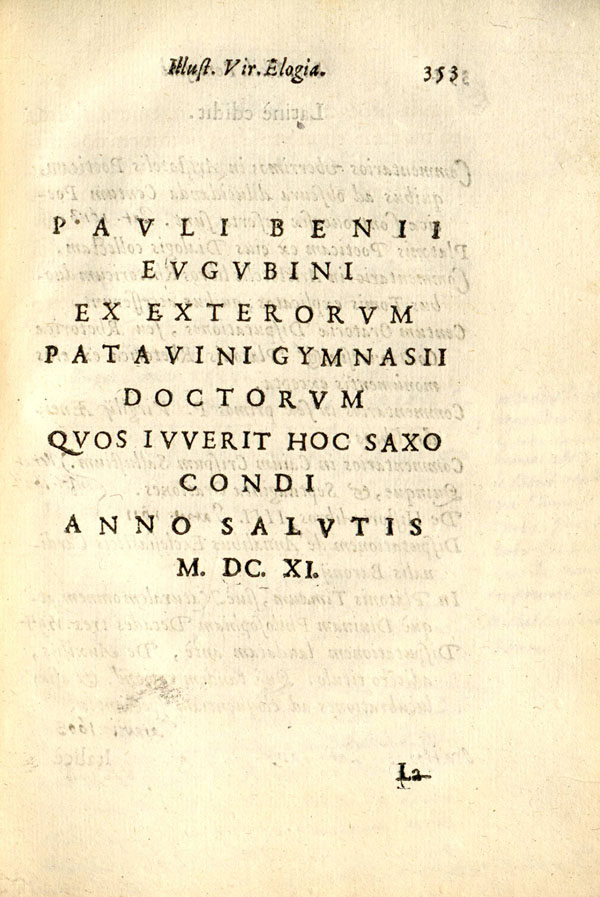 Illuſt. Vir. Elogia. 353
PAVLI BENII
EVGVBINI
EX EXTERORVM
PATAVINI GYMNASII
DOCTORVM
QVOS IVVERIT HOC SAXO
CONDI
ANNO SALVTIS
M. DC. XI.
La-